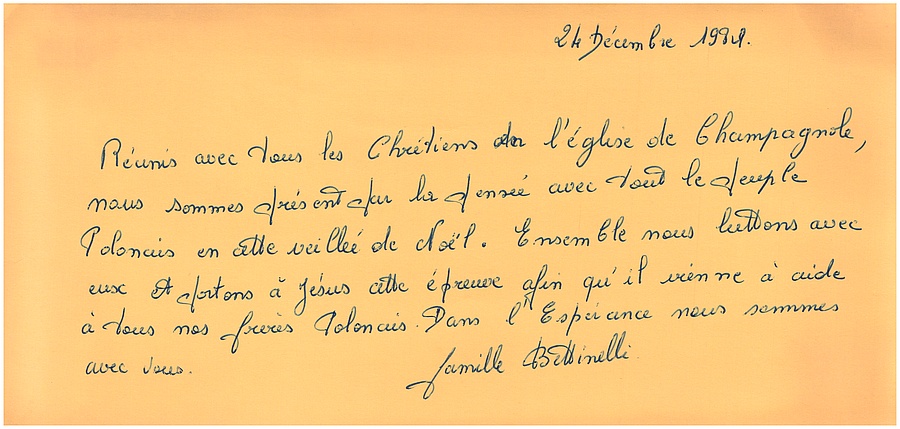 24 Décembre 1981.
Réunis avec tous les Chrétiens dans l'église de Champagnole,
nous sommes présent par la pensée avec tout le peuple
Polonais en cette veilleé de Noël. Ensemble nous luttons avec
eux et portons à Jésus cette épreuve afin qu'il vienne à aide
à tous nos frères Polonais. Dans l'Espérance nous sommes
avec vous.
famille Bettinelli